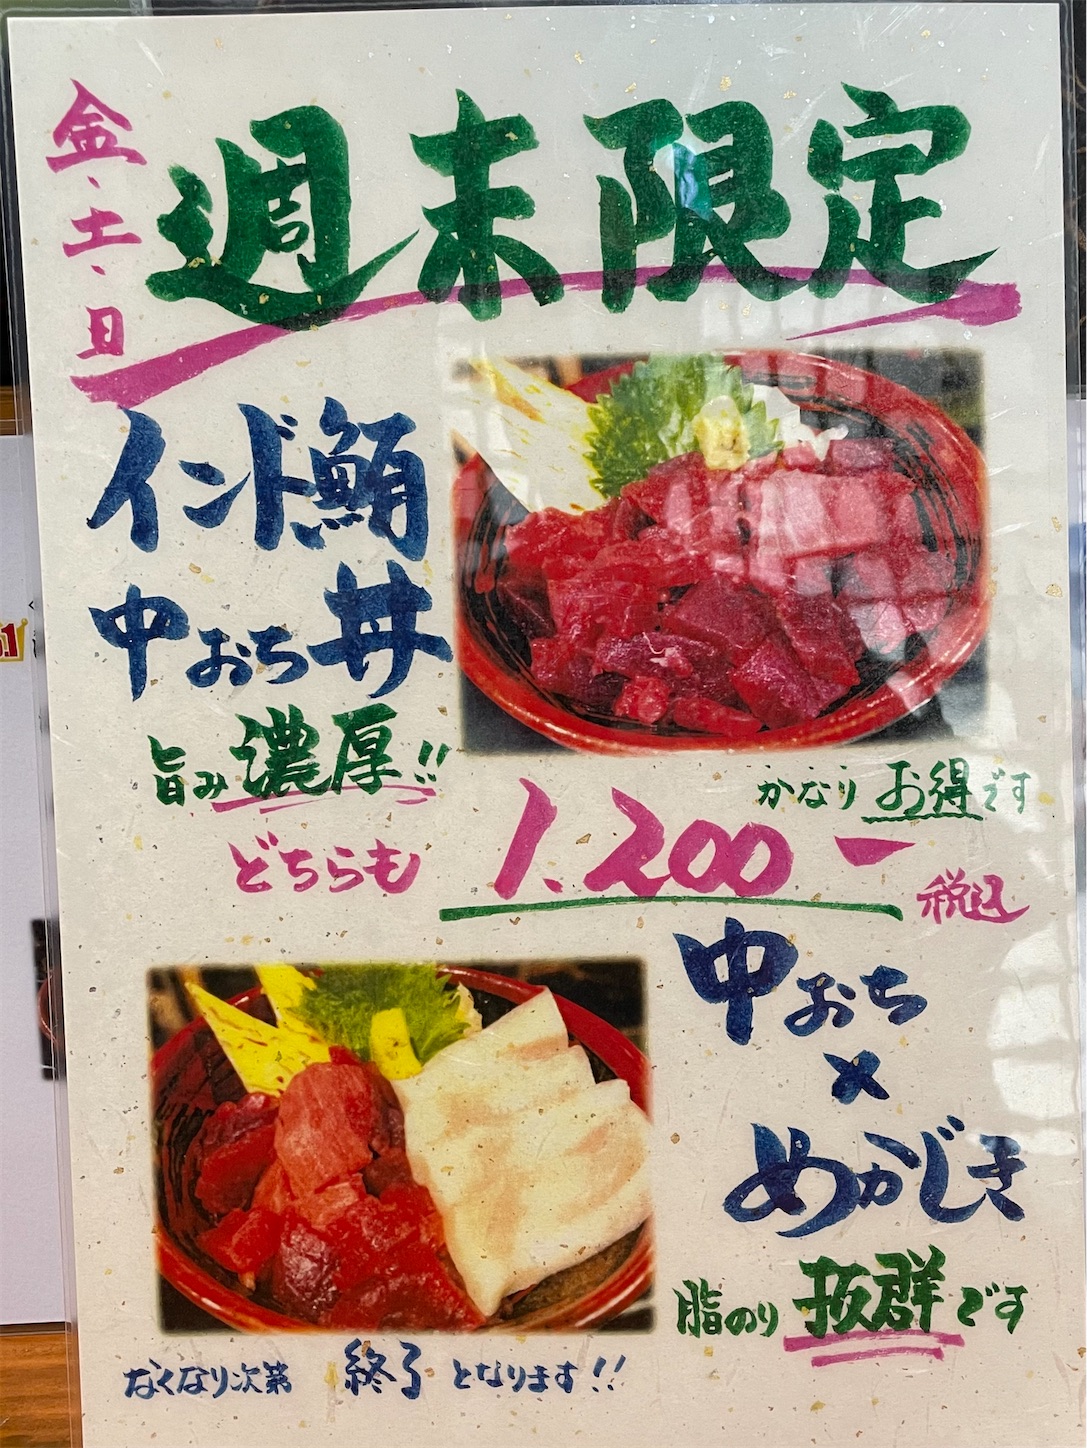 金、土、日
週末限定
インド鮪
中おち丼
旨み濃厚!!
かなりお得です
どちらも 1.200ー 税込
中おち
×
めかじき
脂のり抜群です
なくなり次第 終了となります!!